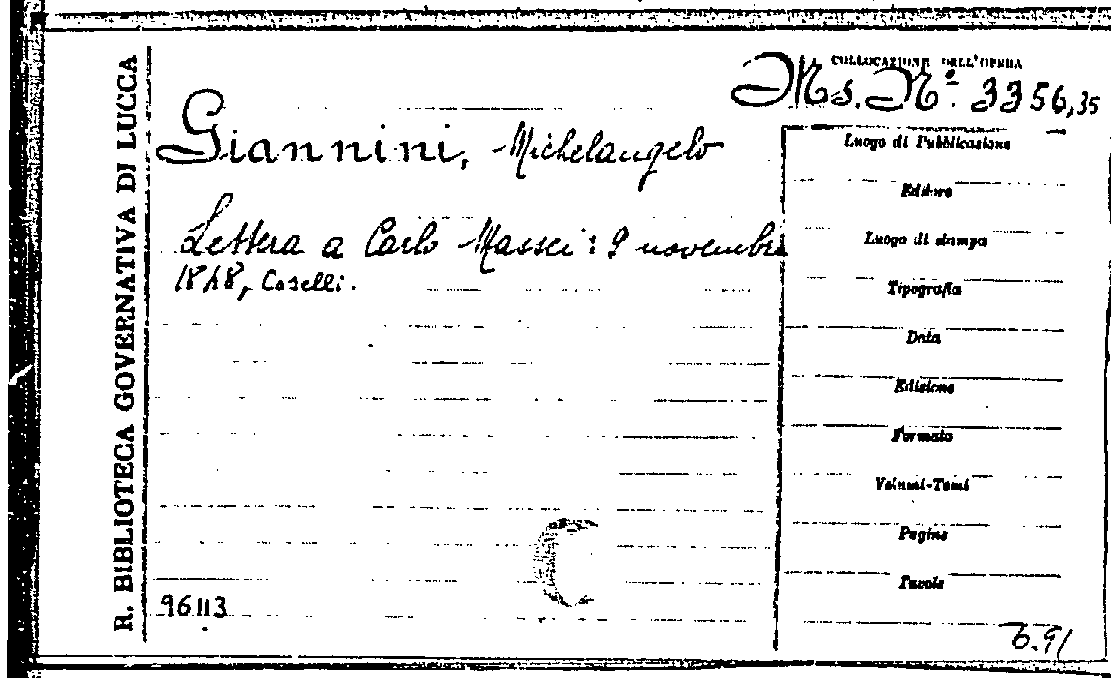 R. BIBLIOTECA GOVERNATIVA DI LUCCA
COLLOCAZIONE DELL'OPERA
Ms. Nº. 3356,35
Giannini, Michelangelo
Lettera a Carlo Massei: 9 novembre
1848, Caselli.
Luogo di Pubblicazione
Editore
Luogo di stampa
Tipografia
Data
Edizione
Formato
Volumi-Tomi
Pagine
Tavole
96113
6.91